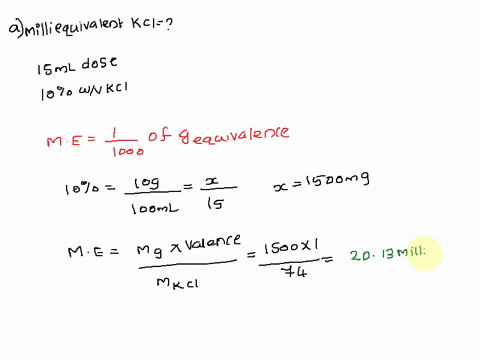 a) Milliequivalent KCl=?
15mL dose
10% w/v KCl
M.E = 1/1000 of g equivalence
10% = 10g/100mL = x/15 x = 1500mg
M.E = Mg x valence/MKCl = 1500x1/74 = 20.13 mill